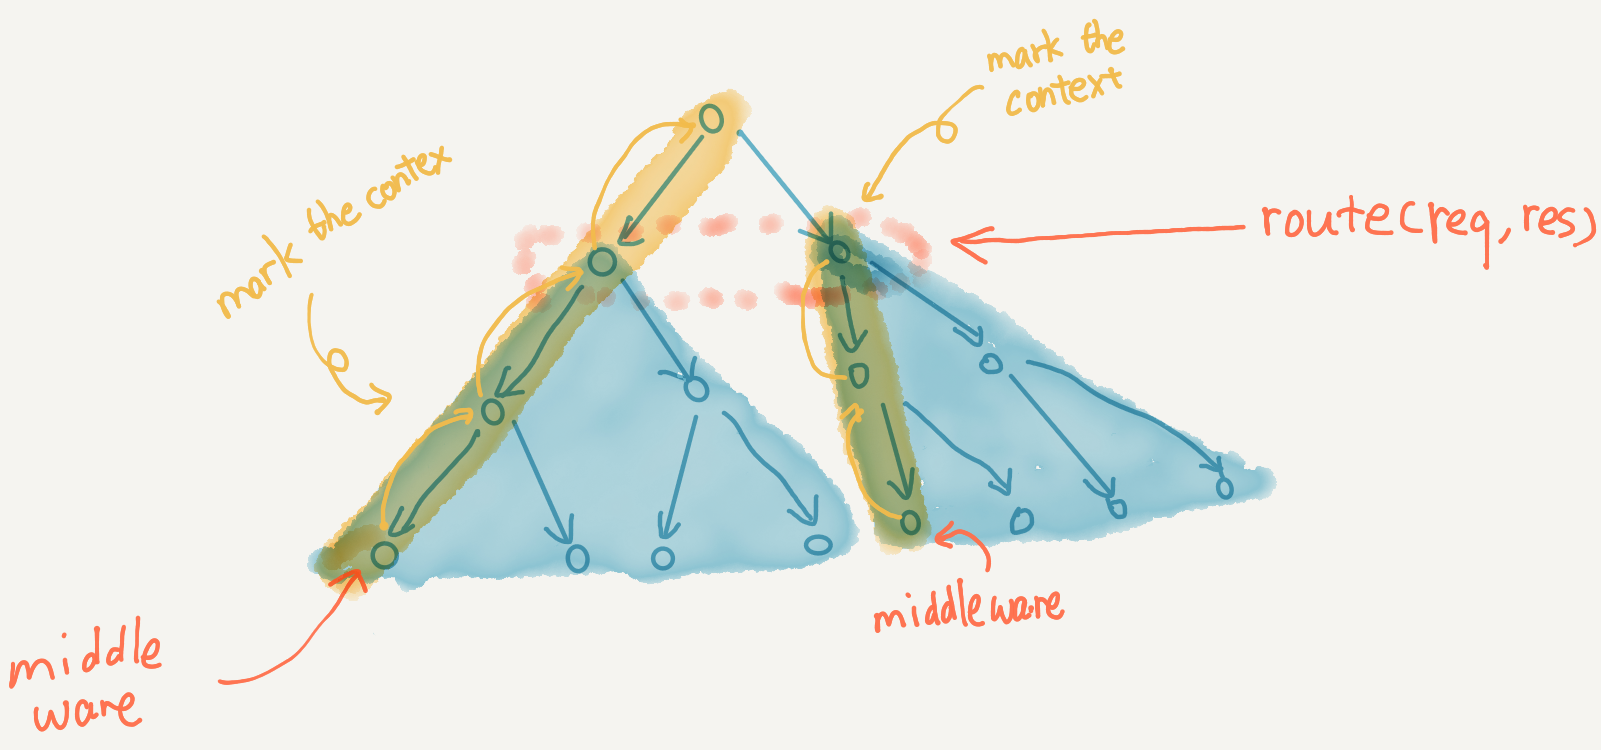 mark the
context
mark the contex
route(req, res)
middleware
middle
ware